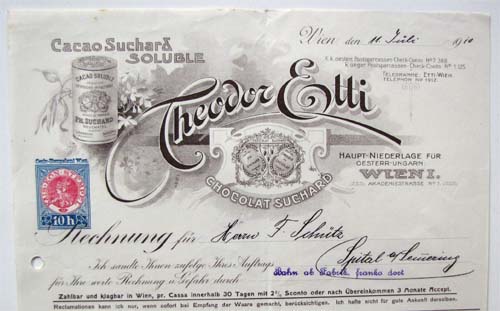 Cacao Suchard
SOLUBLE
Wien, den 11. Juli 1910
K. k. oesterr. Postsparcassen-Check-Conto No 7.348
TELEGRAMME: ETTI-WIEN
TELEPHON No 1912.
CACAO SOLUBLE
PH. SUCHARD
Theodor Etti
HAUPT-NIEDERLAGE FÜR
OESTERR.-UNGARN.
WIEN I.
AKADEMIESTRASSE
CHOCOLAT SUCHARD
10 h
Rechnung für Herrn F. Schütz
Spital a/ Semmering
Ich sandte Ihnen zufolge Ihres Auftrags
Bahn ab Fabrik franko dort
für Ihre werte Rechnung & Gefahr durch
Zahlbar und klagbar in Wien, pr. Cassa innerhalb 30 Tagen mit 2% Sconto oder nach Übereinkommen 3 Monate Accept.
Reclamationen kann ich nur, wenn sofort bei Empfang der Waare gemacht, berücksichtigen. Ich hafte nicht für gute Ankunft derselben.